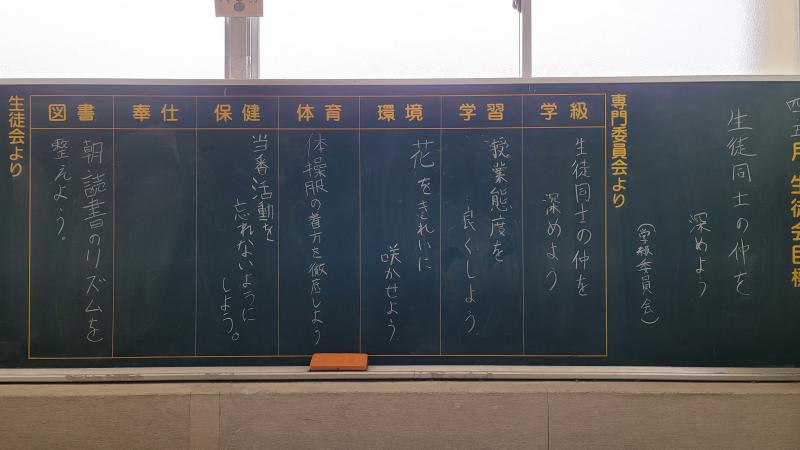 四・五月 生徒会目標
生徒同士の仲を
深めよう
（学級委員会）
専門委員会より
学級
生徒同士の仲を
深めよう
学習
授業態度を
良くしよう
環境
花をきれいに
咲かせよう
体育
体操服の着方を徹底しよう
保健
当番活動を
忘れないように
しよう。
奉仕
図書
朝読書のリズムを
整えよう。
生徒会より